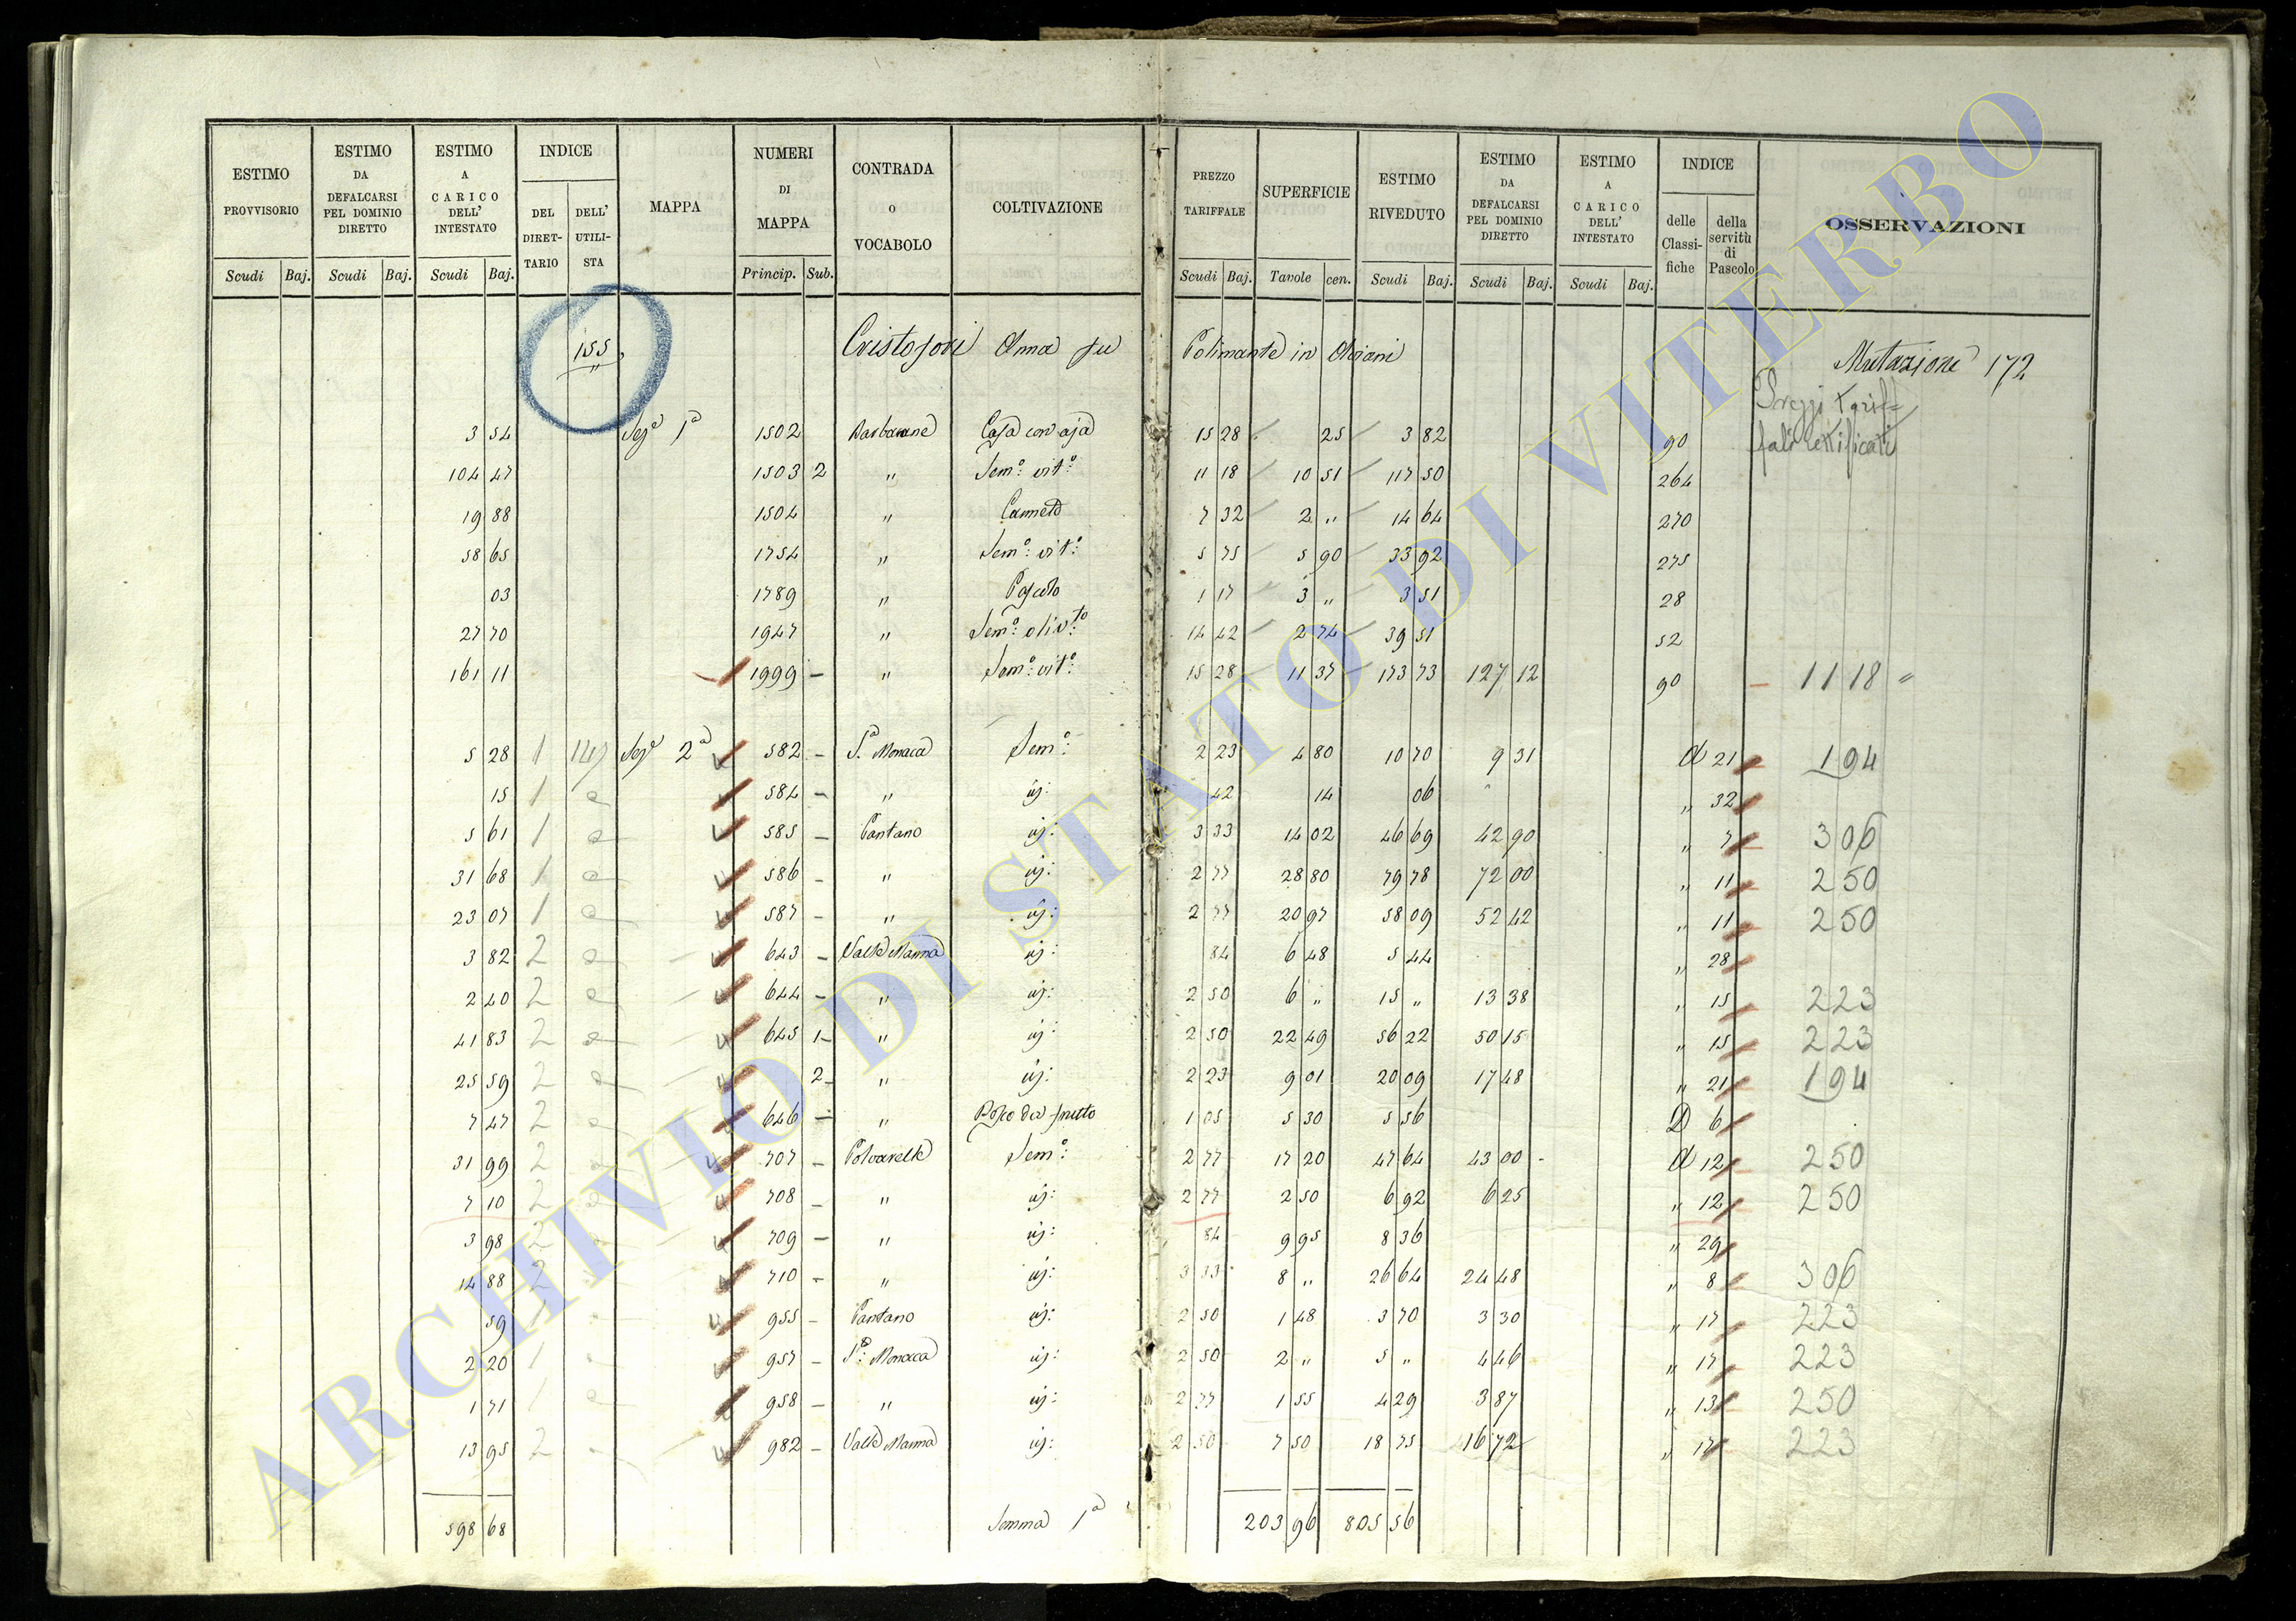 ESTIMO PROVVISORIO | ESTIMO DA DEFALCARSI PEL DOMINIO DIRETTO | ESTIMO A CARICO DELL' INTESTATO | INDICE | MAPPA | NUMERI DI MAPPA | CONTRADA o VOCABOLO | COLTIVAZIONE | PREZZO TARIFFALE | SUPERFICIE | ESTIMO RIVEDUTO | ESTIMO DA DEFALCARSI PEL DOMINIO DIRETTO | ESTIMO A CARICO DELL' INTESTATO | INDICE | OSSERVAZIONI
DEL DIRET-TARIO | DELL' UTILI-STA | delle Classi-fiche | della servitù di Pascolo
Scudi | Baj. | Scudi | Baj. | Scudi | Baj. | Princip. | Sub. | Scudi | Baj. | Tavole | cen. | Scudi | Baj. | Scudi | Baj. | Scudi | Baj.
155 Cristofori Anna fu Polimante in Mutazione 172
Prezzi tarif-
fali rettificati
3 54 Sez.e 1a 1502 Barbarane Casa con aja 15 28 25 3 82 90
104 47 1503 2 " Sem.o vit.o 11 18 10 51 117 50 264
19 88 1504 " Canneto 7 32 2 " 14 64 270
58 65 1754 " Sem.o vit.o 5 75 5 90 33 92 275
03 1789 " Pascolo 1 17 3 " 3 51 28
27 70 1947 " Sem.o oliv.to 14 42 2 74 39 51 52
161 11 1999 – " Sem.o vit.o 15 28 11 37 173 73 127 12 90 – 11 18 "
5 28 1 147 Sez.e 2a 582 – S.a Monaca Sem.o 2 23 4 80 10 70 9 31 A 21 1 94
15 1 584 – " id: 42 14 06 " 32
5 61 1 585 – Pantano id: 3 33 14 02 46 69 42 90 " 7 3 06
31 68 1 586 – " id: 2 77 28 80 79 78 72 00 " 11 2 50
23 07 1 587 – " id: 2 77 20 97 58 09 52 42 " 11 2 50
3 82 2 643 – Valle Manna id: 84 6 48 5 44 " 28
2 40 2 644 – " id: 2 50 6 " 15 " 13 38 " 15 2 23
41 83 2 645 1– " id: 2 50 22 49 56 22 50 15 " 15 2 23
25 59 2 2– " id: 2 23 9 01 20 09 17 48 " 21 1 94
7 47 2 646 – " Bosco da frutto 1 05 5 30 5 56 D 6
31 99 2 707 – Polvarelle Sem.o 2 77 17 20 47 64 43 00 – A 12 2 50
7 10 2 708 – " id: 2 77 2 50 6 92 6 25 " 12 2 50
3 98 2 709 – " id: 84 9 95 8 36 " 29
14 88 2 710 – " id: 3 33 8 " 26 64 24 48 " 8 3 06
59 1 955 – Pantano id: 2 50 1 48 3 70 3 30 " 17 2 23
2 20 1 957 – S.a Monaca id: 2 50 2 " 5 " 4 46 " 17 2 23
1 71 1 958 – " id: 2 77 1 55 4 29 3 87 " 13 2 50
13 95 2 982 – Valle Manna id: 2 50 7 50 18 75 16 72 " 17 2 23
598 68 Somma 1a 203 96 805 56
ARCHIVIO DI STATO DI VITERBO